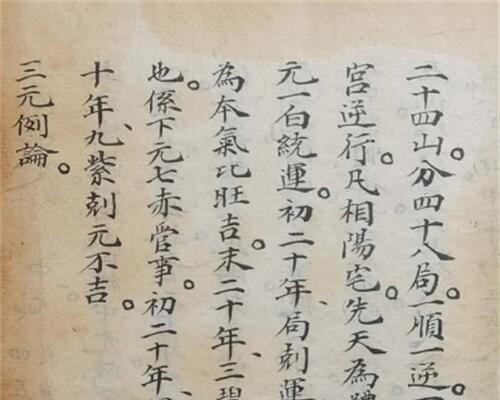 二十四山。分四十八局。一順一逆。
宮逆行。凡相陽宅。先天為體
元一白統運。初二十年、局剋運
為本氣比旺吉。末二十年、三碧
也。係下元七赤管事。初二十年、
十年、九紫剋元不吉。
三元例論。